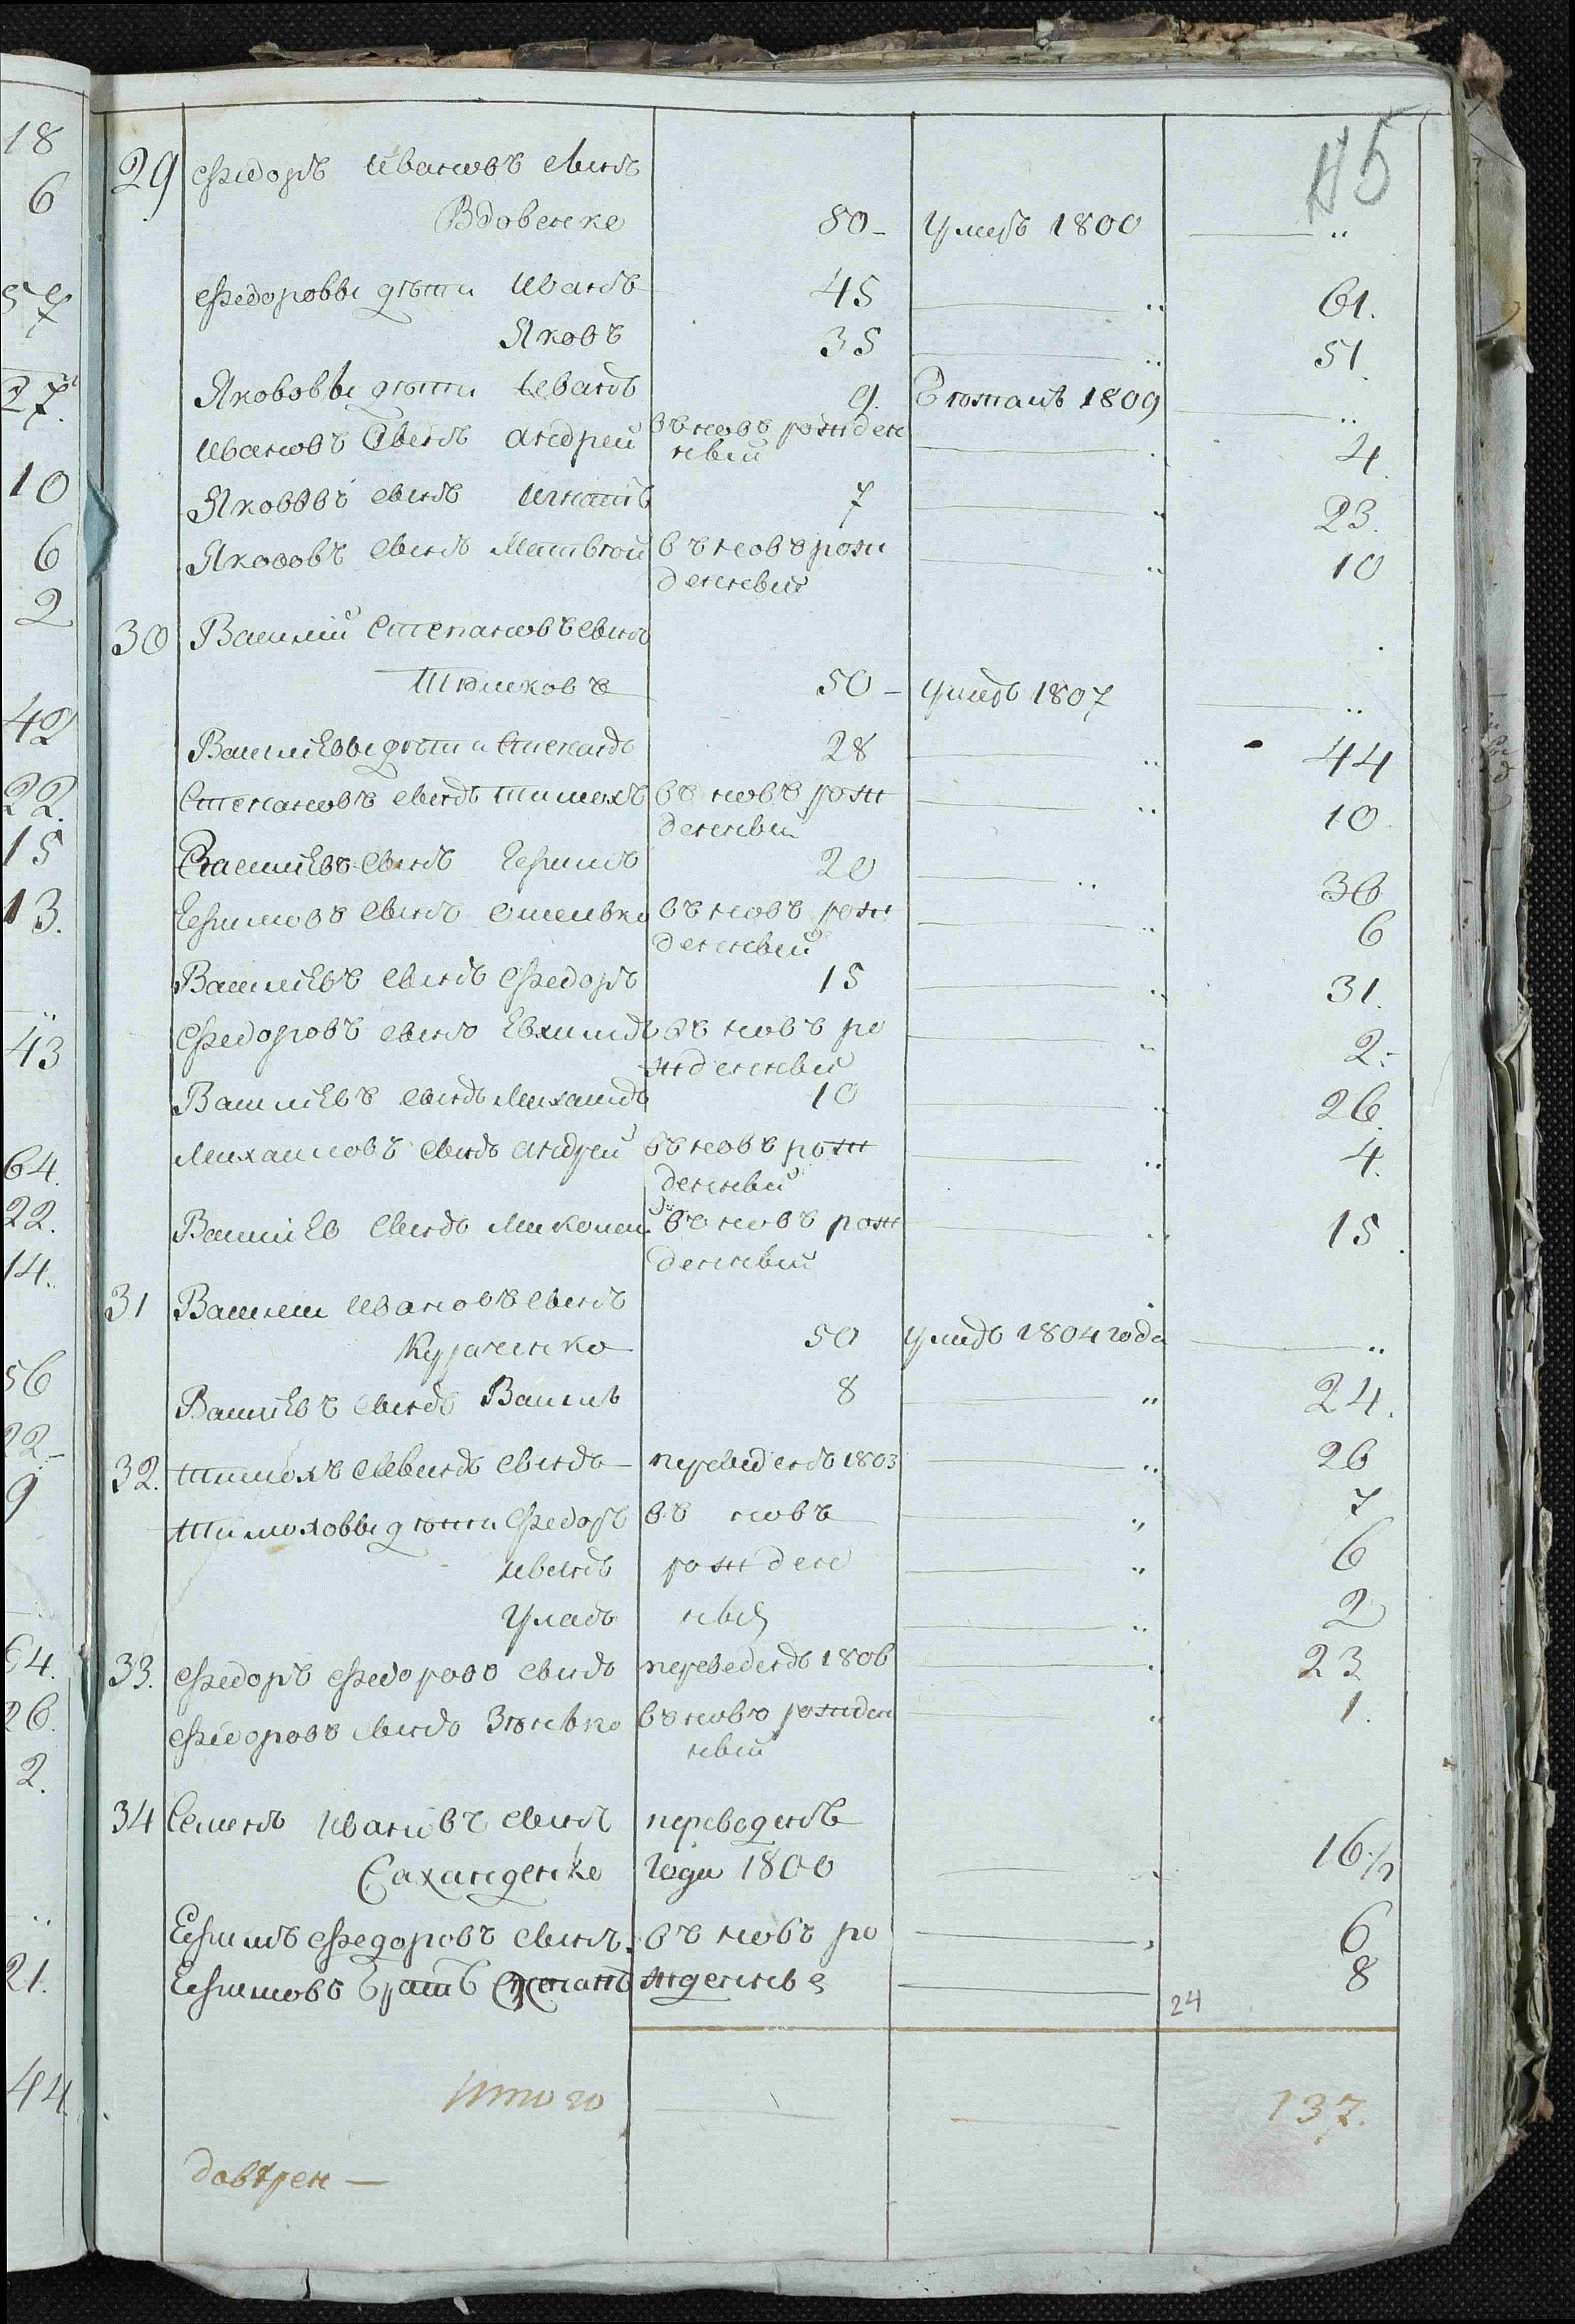 18
6
57
27.
10
6
2
42
22.
15
13.
43
64.
22.
14.
56
22-
9
64.
26.
2.
21.
44
45
29 Федоръ Ивановъ сынъ
Вдовенко 80- умеръ 1800 — „
Федоровы дѣти Иванъ 45 — „ 61.
Яковъ 35 — „ 51.
Яковович дѣти Иванъ 9. 1809 — „
Ивановъ сынъ Андрей въновь рожден
ный — 4.
Яковъ сынъ Игнатъ 7 — „ 23.
Яковъ сынъ Матвѣй въновь рож
денный — „ 10
30 Василій Степановъ сынъ
Тюшковъ 50- умеръ 1807 — „
Василіевы дѣти Степанъ 28 — „ 44
Степановъ сынъ Тимохъ въ новъ рож
денный — „ 10
Василіевъ сынъ Ефимъ 20 — „ 36
Ефимовъ сынъ Омелько въ новъ рож
денный — „ 6
Василіевъ сынъ Федоръ 15 — „ 31.
Федоровъ сынъ Евхимъ въ новъ ро
жденный — „ 2-
Василіевъ сынъ Михаилъ 10 — „ 26.
Михаиловъ сынъ Андрей въ новъ рож
денный — „ 4.
Василіев сынъ Миколай въ новъ рож
денный — „ 15.
31 Василий Ивановъ сынъ
Кураченко 50 умеръ 1804 года — „
Василіевъ сынъ Василь 8 — „ 24.
32. Тимохъ сынъ переведенъ 1803 — „ 26
Тимоховы дѣти Федоръ въ новъ — „ 7
Иванъ рожден — „ 6
Уласъ ныя — „ 2
33. Федоръ Федоровъ сынъ переведенъ 1806 — „ 23
Федоровъ сынъ Зѣнько въновь рожден
ный — „ 1.
34 Семенъ Ивановъ сынъ переведенъ
Саханденко года 1800 — „ 16 1/2
Ефимъ Федоровъ сынъ въ новъ ро — „ 6
Ефимовъ братъ Степанъ жденные — 8
24
Итого — — 137.